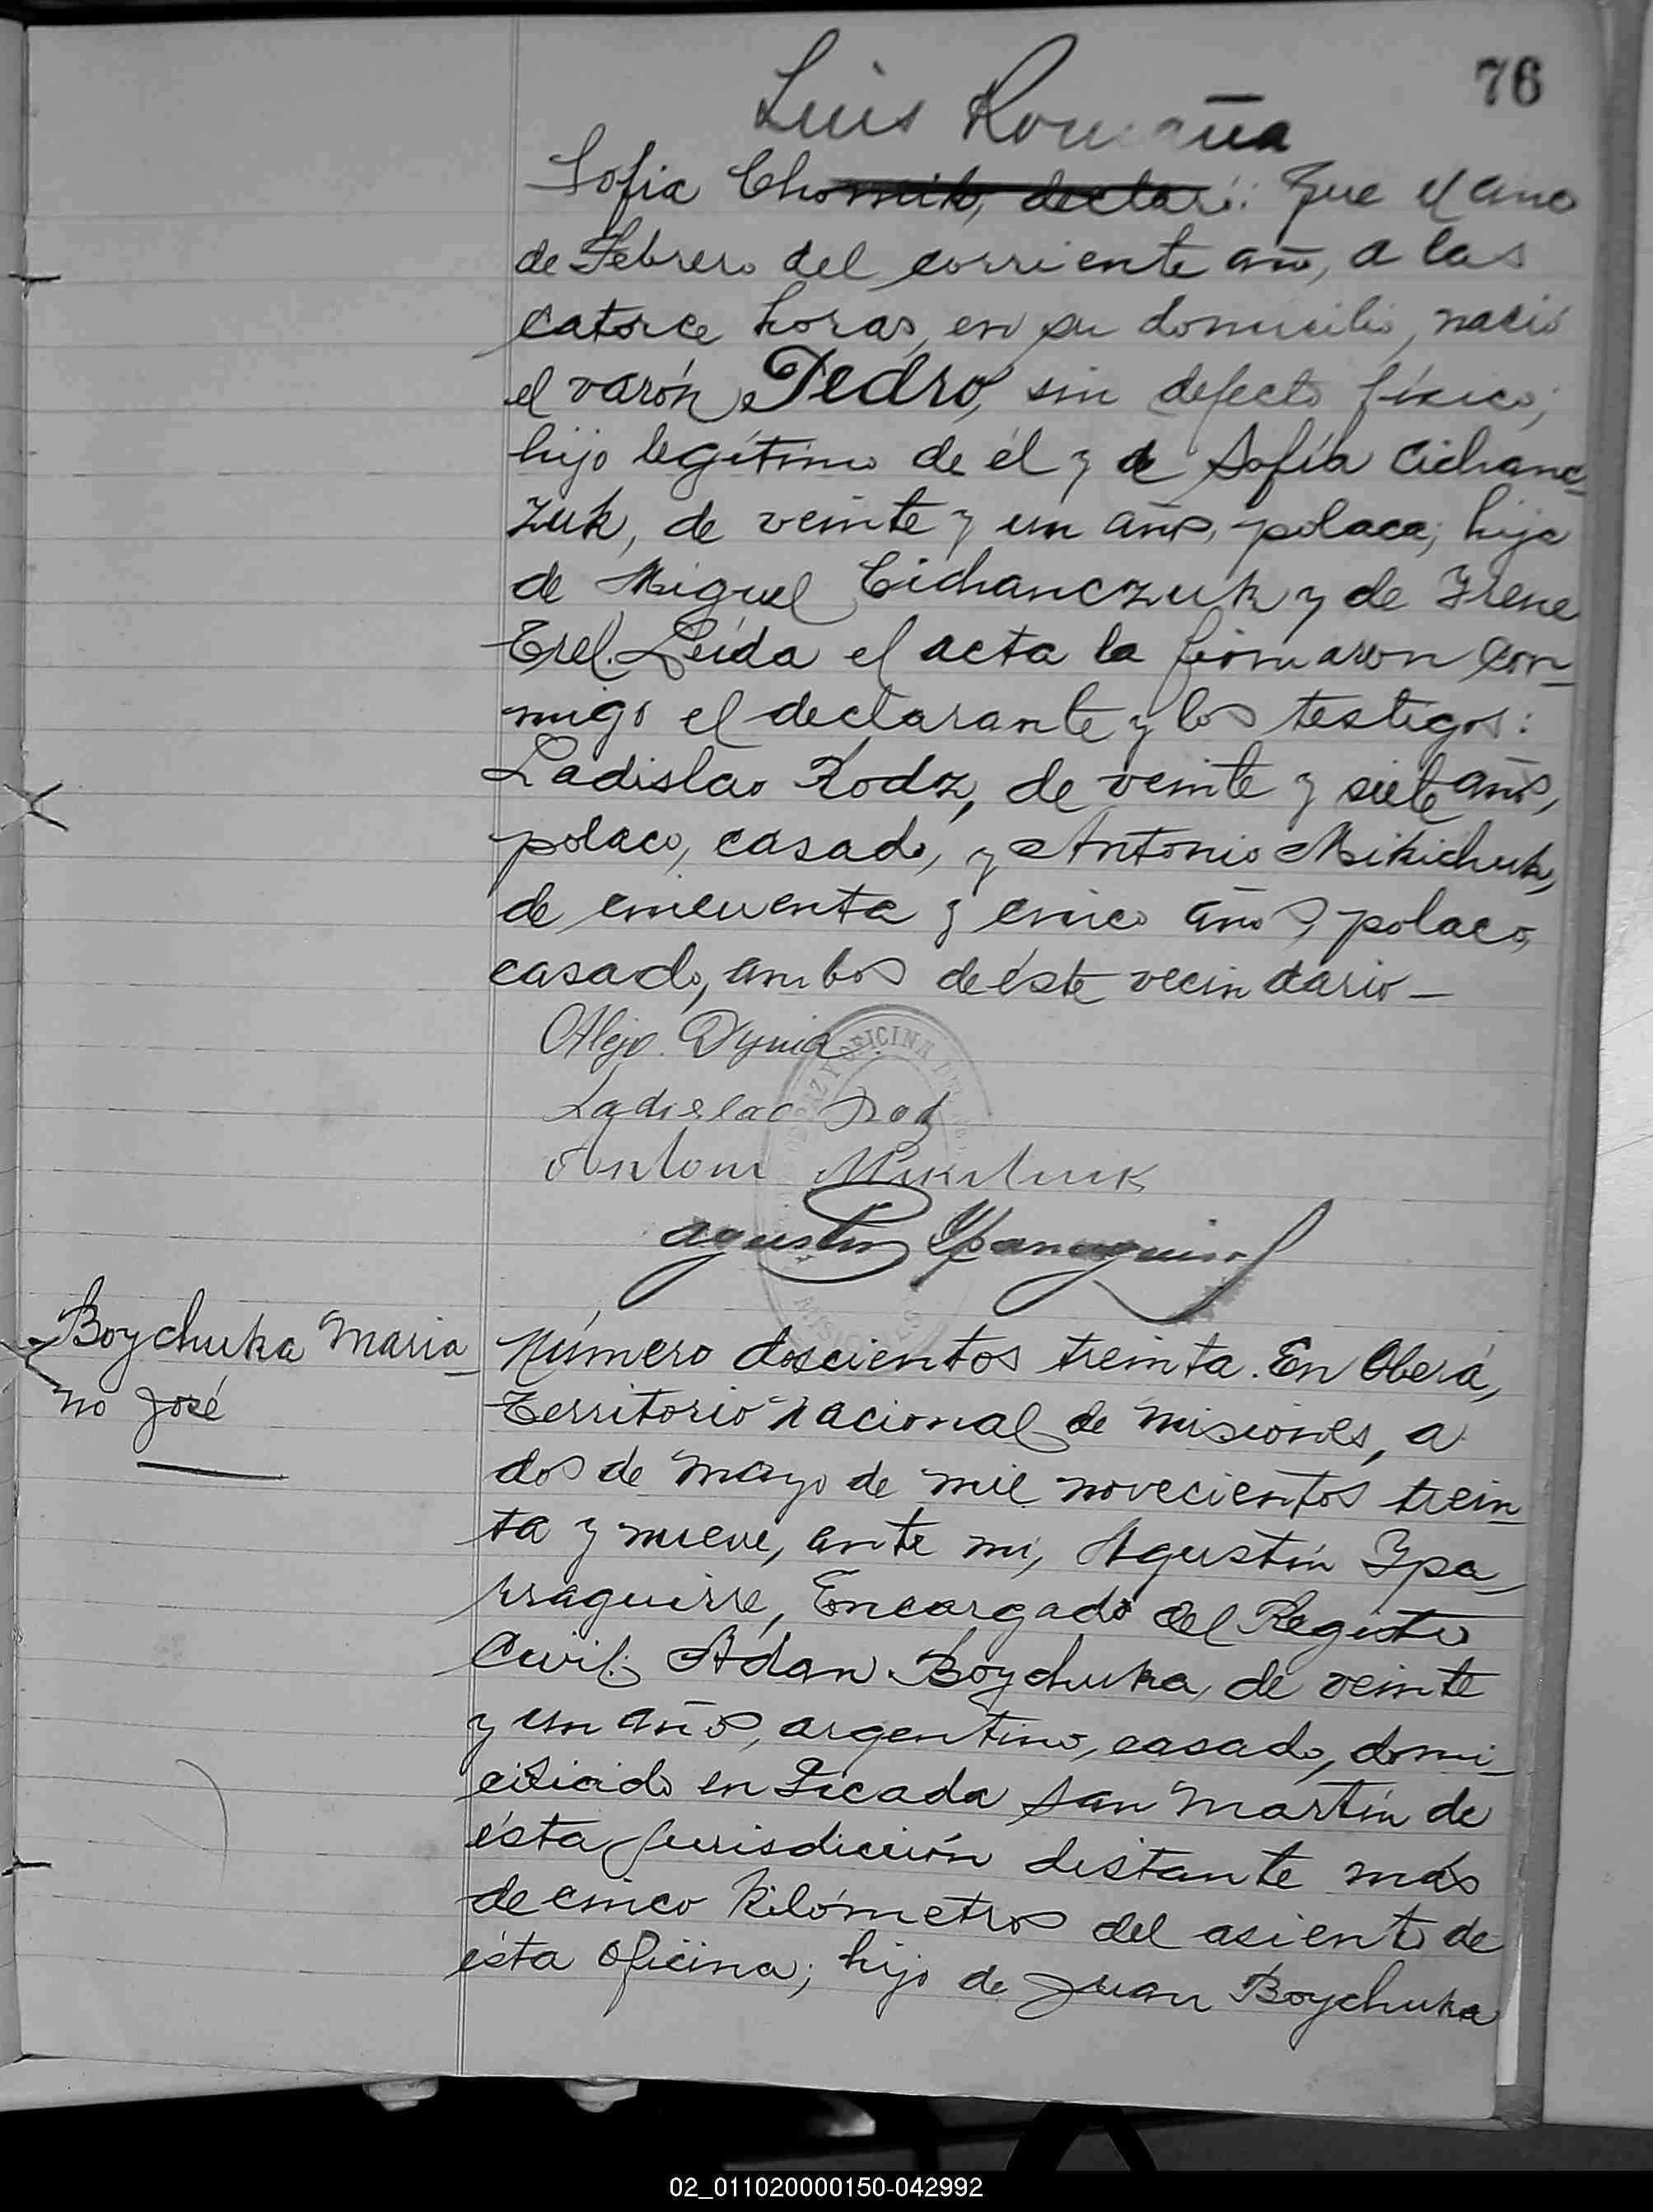 76
Luis Romaña
Sofia Chomik, declaró: Que el cinco
de Febrero del corriente año, a las
catorce horas, en su domicilio, nació
el varón Pedro, sin defecto físico;
hijo legítimo de él y de Sofía Cichanc-
zuk, de veinte y un años, polaca; hija
de Miguel Cichanczuk y de Irene
Erel. Leída el acta la firmaron con-
migo el declarante y los testigos:
Ladislao Rodz, de veinte y siete años,
polaco, casado, y Antonio Mikichuk,
de cincuenta y cinco años, polaco,
casado, ambos de éste vecindario—
Alejo Dynia
Ladislao Rodz
Antoni
OFICINA
MISIONES
Agustin Yparraguirre
Boychuka Maria-
no José
Número doscientos treinta. En Oberá,
Territorio Nacional de Misiones, a
dos de Mayo de mil novecientos trein-
ta y nueve, ante mí, Agustín Ypa-
rraguirre, Encargado del Registro
Civil; Adan Boychuka, de veinte
y un años, argentino, casado, domi-
ciliado en Picada San Martín de
ésta jurisdicción distante más
de cinco kilómetros del asiento de
ésta oficina; hijo de Juan Boychuka
02_011020000150-042992